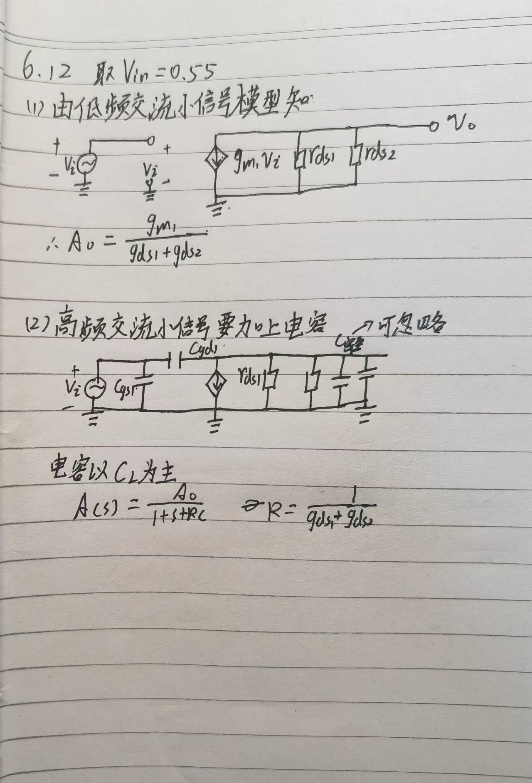 6.12 取 Vin=0.55
(1) 由低频交流小信号模型知
+ Vi - Vi + - gm1Vi rds1 rds2 Vo
∴ A0 = gm1 / (gds1+gds2)
(2) 高频交流小信号要加上电容 → 可忽略
+ Vi - Cgs1 Cgd1 rds1
电容以 CL 为主
A(s) = A0 / (1+s+RC) → R = 1 / (gds1+gds2)